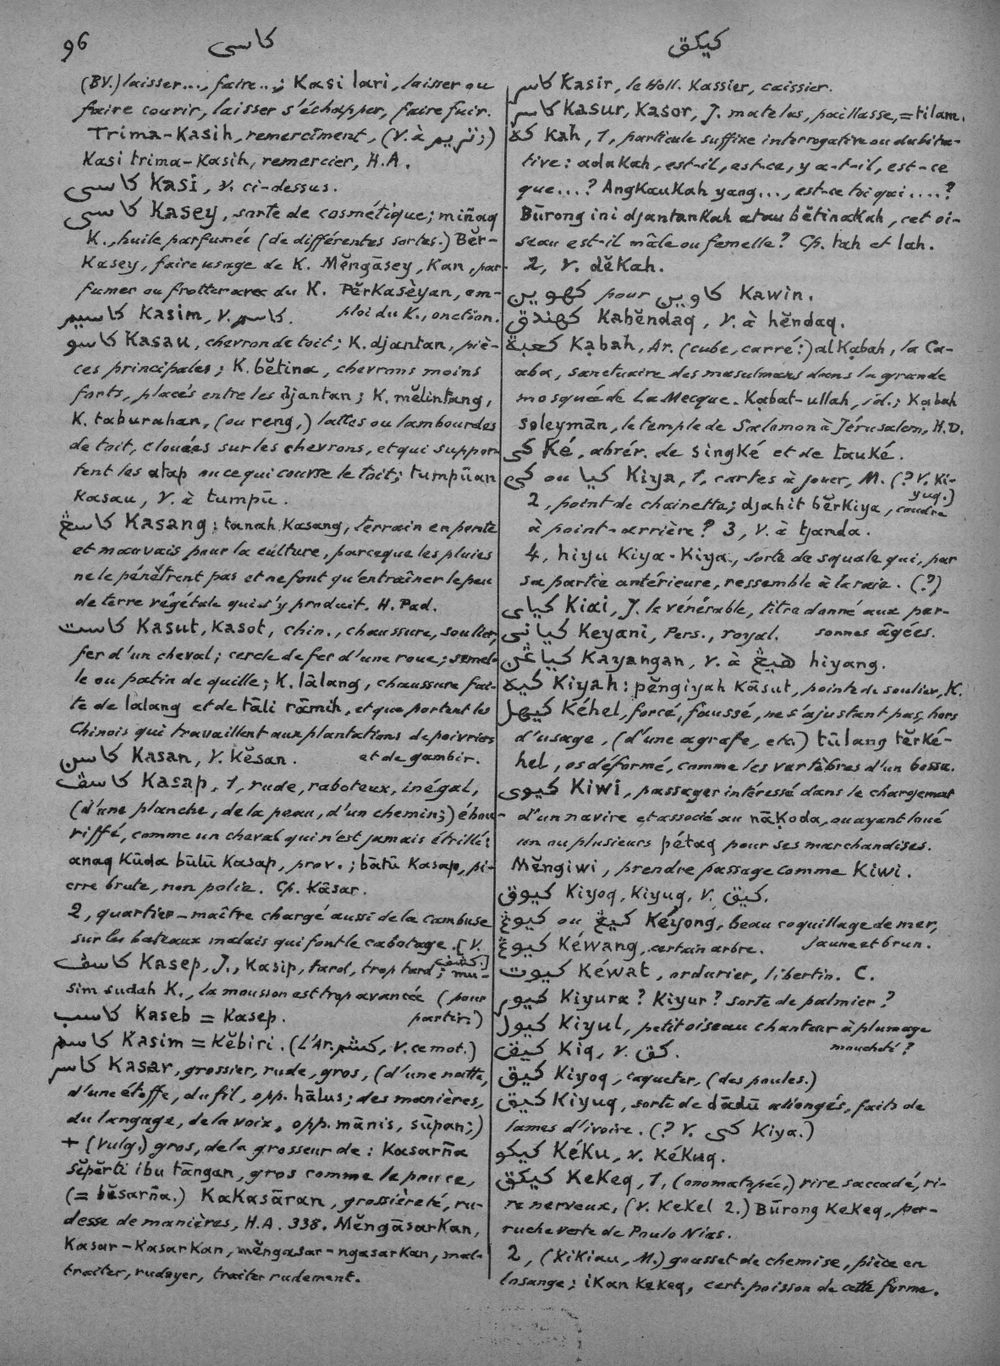 96
كاسى
كيكق
(BV.) laisser..., faire...; Kasi lari, laisser ou
faire courir, laisser s'échapper, faire fuir.
Trima-Kasih, remercîment, (V. à تريم;)
Kasi trima-Kasih, remercier, H.A.
كاسى Kasi, v. ci-dessus.
كاسى Kasey, sorte de cosmétique; miñaq
K., huile parfumée (de différentes sortes.) Bĕr-
Kasey, faire usage de K. Mĕngāsey, Kan, par-
fumer ou frotter avec du K. Pĕrkasèyan, em-
ploi du K., onction.
كاسيم Kasim, V. كاسم.
كاسو Kasau, chevron de toit; K. djantan, piè-
ces principales; K. bĕtina, chevrons moins
forts, placés entre les djantan; K. mĕlintang,
K. taburahan, (ou reng,) lattes ou lambourdes
de toit, clouées sur les chevrons, et qui suppor-
tent les atap ou ce qui couvre le toit; tumpūan
Kasau, V. à tumpū.
كاسڠ Kasang: tanah Kasang, terrain en pente
et mauvais pour la culture, parceque les pluies
ne le pénètrent pas et ne font qu'entraîner le peu
de terre végétale qui s'y produit. H. Pad.
كاست Kasut, Kasot, chin., chaussure, soulier,
fer d'un cheval; cercle de fer d'une roue; semel-
le ou patin de quille; K. lālang, chaussure fai-
te de lalang et de tāli rāmih, et que portent les
Chinois qui travaillent aux plantations de poivriers
et de gambir.
كاسن Kasan, V. Kĕsan.
كاسڤ Kasap, 1, rude, raboteux, inégal,
(d'une planche, de la peau, d'un chemin;) ébou-
riffé, comme un cheval qui n'est jamais étrillé:
anaq Kūda būlū Kasap, prov.; bātū Kasap, pi-
erre brute, non polie. Cp. Kāsar.
2, quartier-maître chargé aussi de la cambuse
sur les bateaux malais qui font le cabotage. (V.
كاسڤ Kasep, J., Kasip, tard, trop tard; mu-
sim sudah K., la mousson est trop avancée (pour
partir.)
كاسب Kaseb = Kasep.
كاسم Kasim = Kĕbiri. (L'Ar. , V. ce mot.)
كاسر Kasar, grossier, rude, gros, (d'une natte,
d'une étoffe, du fil, opp. hālus; des manières,
du langage, de la voix, opp. mānis, sūpan;)
+ (vulg.) gros, de la grosseur de: Kasarña
sĕpĕrti ibu tāngan, gros comme le pouce,
(= bĕsarña.) KaKasāran, grossièreté, ru-
desse de manières, H.A. 338. MĕngāsarKan,
Kasar-KasarKan, mĕngasar-ngasarKan, mal-
traiter, rudoyer, traiter rudement.
كاسر Kasir, le Holl. Kassier, caissier.
كاسر Kasur, Kasor, J. matelas, paillasse, = tilam.
كه Kah, 1, particule suffixe interrogative ou dubita-
tive: adaKah, est-il, est-ce, y a-t-il, est-ce
que...? AngKauKah yang..., est-ce toi qui....?
Būrong ini djantanKah atau bĕtinaKah, cet oi-
seau est-il mâle ou femelle? Cp. tah et lah.
2, V. dĕKah.
كهوين pour كاوين Kawin.
كهندق Kahĕndaq, V. à hĕndaq.
كعبة Kạbah, Ar. (cube, carré:) al Kạbah, la Ca-
aba, sanctuaire des musulmans dans la grande
mosquée de La Mecque. Kạbat-ullah, id.; Kạbah
soleymān, le temple de Salomon à Jérusalem, H.D.
كى Ké, abrév. de singKé et de tauKé.
كى ou كيا Kiya, 1, cartes à jouer, M. (? V. Ki-
yuq.)
2, point de chainette; djahit bĕrKiya, coudre
à point-arrière? 3, V. à tjanda.
4, hiyu Kiya-Kiya, sorte de squale qui, par
sa partie antérieure, ressemble à la raie. (?)
كياى Kiai, J. le vénérable, titre donné aux per-
sonnes âgées.
كيانى Keyani, Pers., royal.
كياڠن Kayangan, V. à هيڠ hiyang.
كيه Kiyah: pĕngiyah Kāsut, pointe de soulier, K.
كيهل Kéhel, forcé, faussé, ne s'ajustant pas, hors
d'usage, (d'une agrafe, etc.) tūlang tĕrKé-
hel, os déformé, comme les vertèbres d'un bossu.
كيوى Kiwi, passager intéressé dans le chargement
d'un navire et associé au nāKoda, ou ayant loué
un ou plusieurs pétaq pour ses marchandises.
Mĕngiwi, prendre passage comme Kiwi.
كيوق Kiyoq, Kiyuq, V. كيق.
كيوڠ ou كيڠ Kéyong, beau coquillage de mer,
jaune et brun.
كيوڠ Kéwang, certain arbre.
كيوت Kéwat, ordurier, libertin. C.
كيور Kiyura? Kiyur? sorte de palmier?
كيول Kiyul, petit oiseau chanteur à plumage
moucheté?
كيق Kiq, V. كق.
كيق Kiyoq, caqueter, (des poules.)
كيق Kiyuq, sorte de dādū allongés, faits de
lames d'ivoire. (? V. كى Kiya.)
كيكو KéKu, v. KéKuq.
كيكق KeKeq, 1, (onomatopée,) rire saccadé, ri-
re nerveux, (V. KeKel 2.) Būrong KeKeq, per-
ruche verte de Poulo Nias.
2, (KiKiau, M.) gousset de chemise, pièce en
losange; iKan KeKeq, cert. poisson de cette forme.